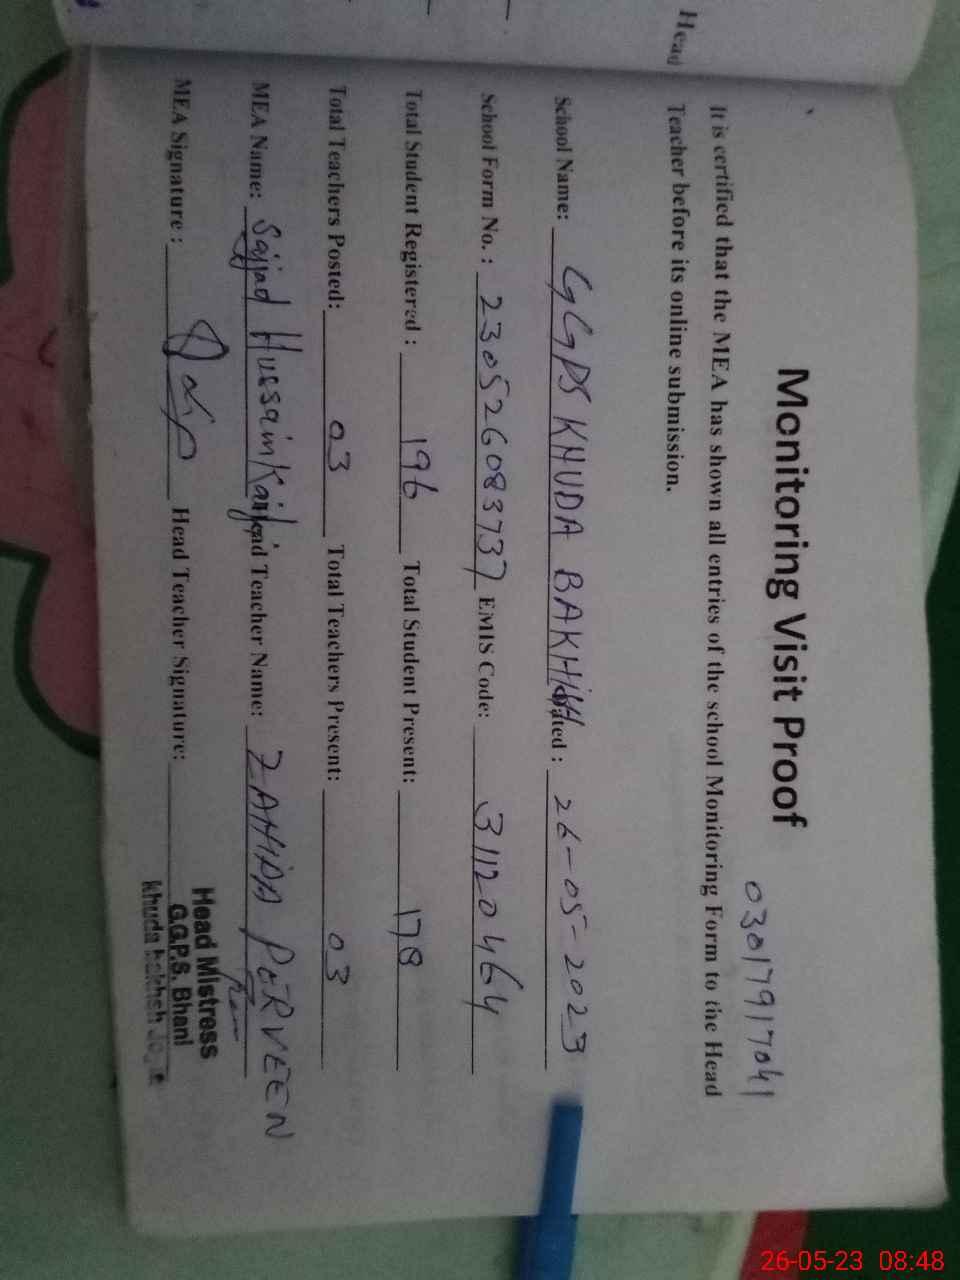 Head
Monitoring Visit Proof
03017917041
It is certified that the MEA has shown all entries of the school Monitoring Form to the Head
Teacher before its online submission.
School Name: GGPS KHUDA BAKHSH Dated : 26-05-2023
School Form No. : 230526083737 EMIS Code: 31120464
Total Student Registered : 196 Total Student Present: 178
Total Teachers Posted: 03 Total Teachers Present: 03
MEA Name: Sajjad Hussain Head Teacher Name: ZAHIDA PERVEEN
MEA Signature : Head Teacher Signature:
Head Mistress
G.G.P.S. Bhani
khuda bakhsh
26-05-23 08:48